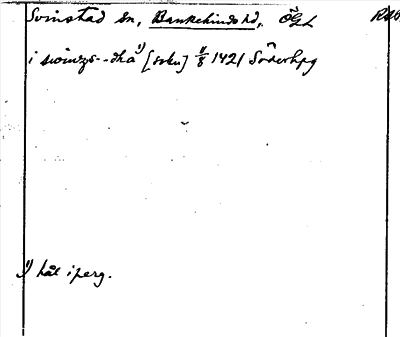 Svinstad sn, Bankekinds hd, Ögl
i swinzs--dha 1) [sokn] 11/8 1421 Söderkpg
1) hål i perg.